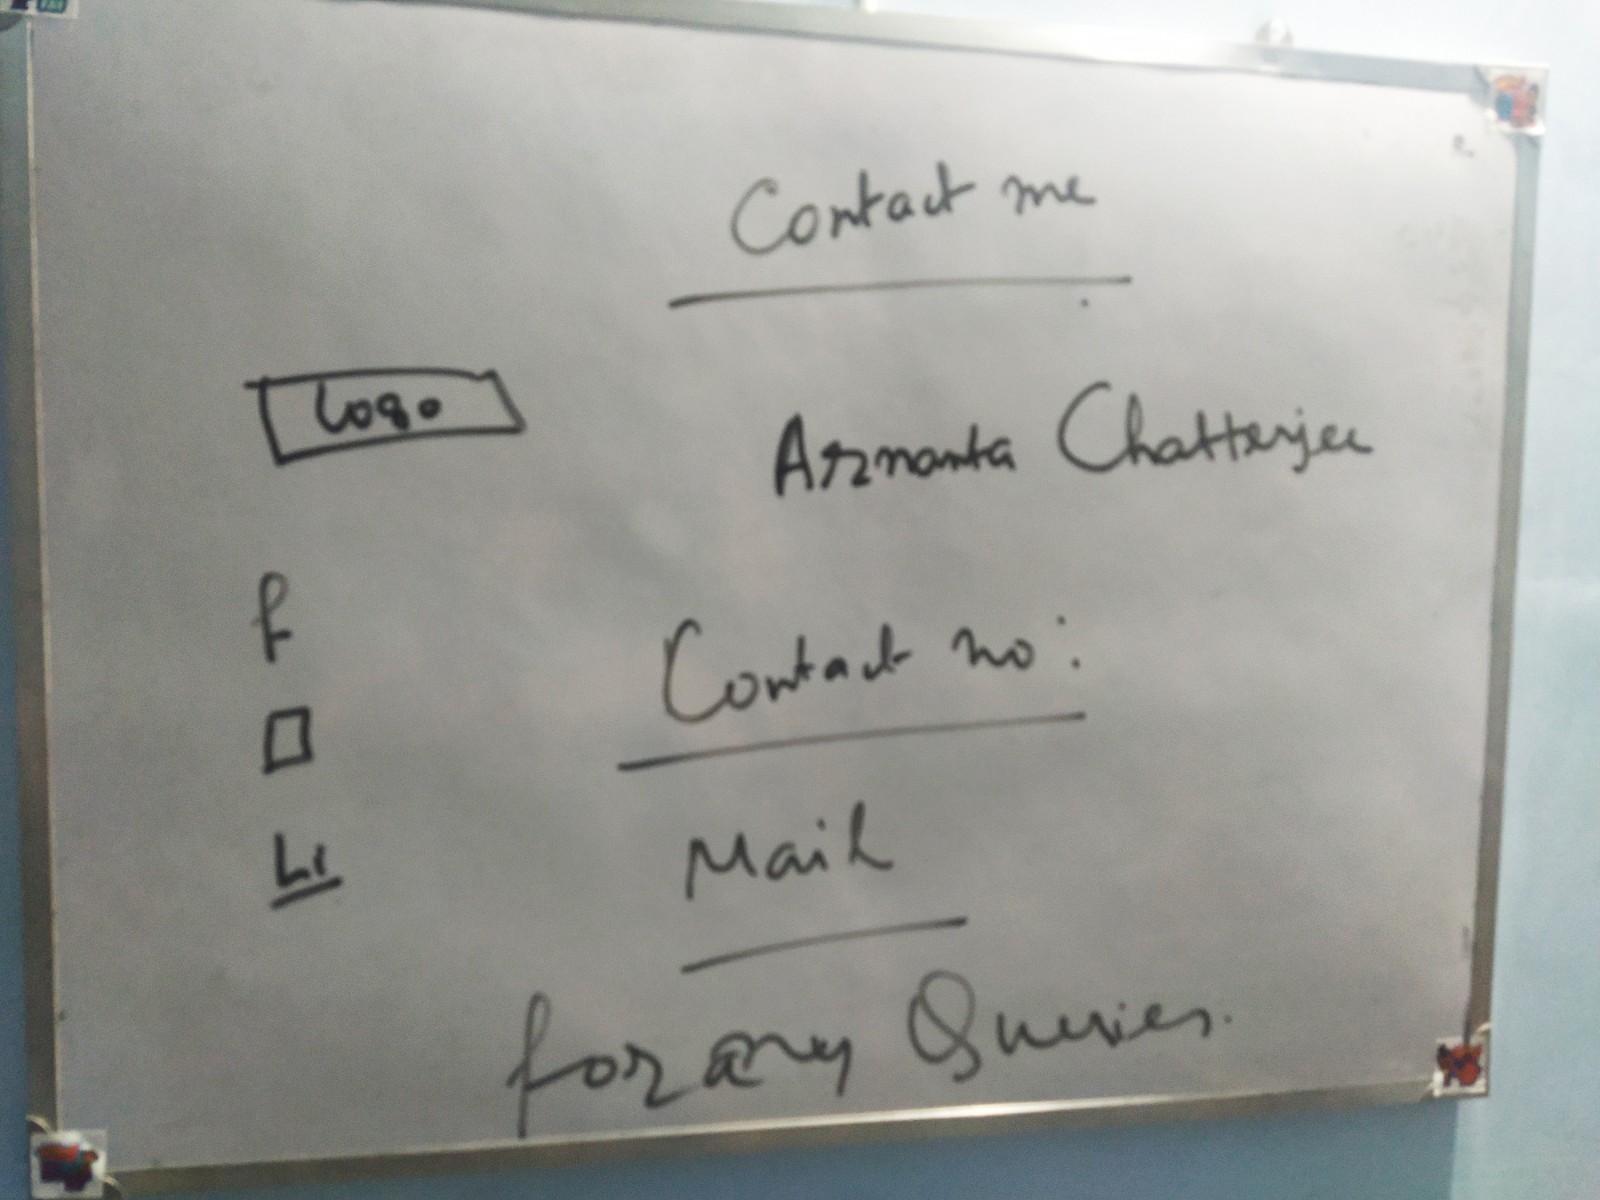 Contact me
Logo
Arnanta Chatterjee
f
Contact no:
Li
Mail
for any Queries.